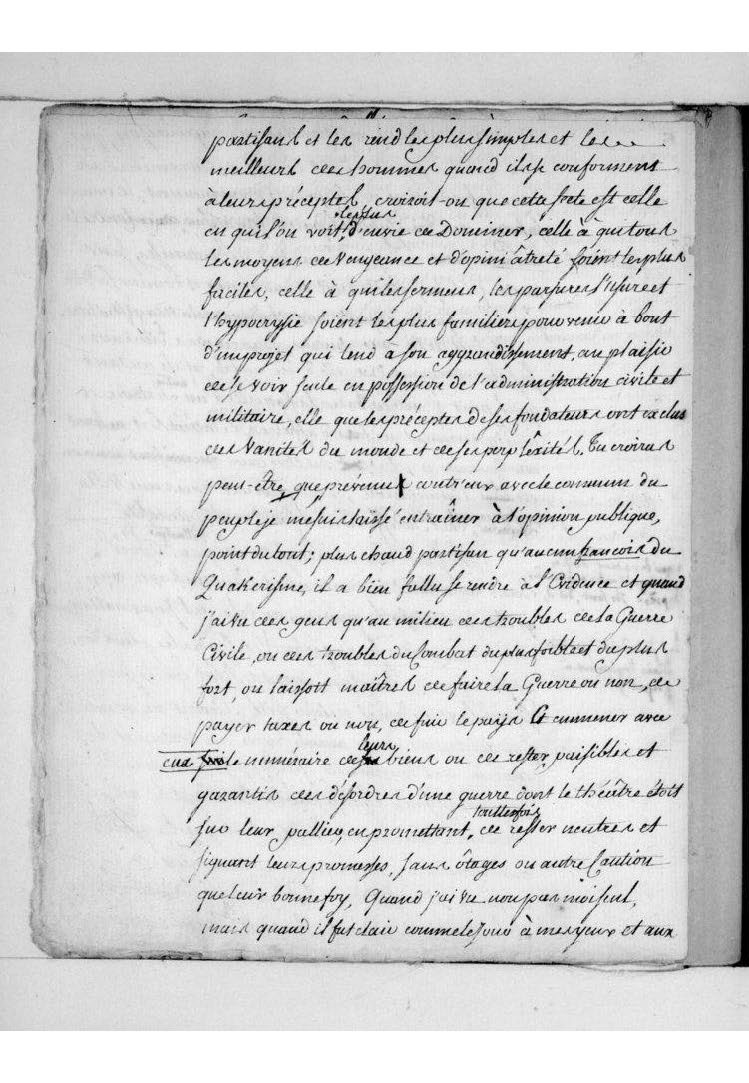 partisans et les rend les plus simples et les
meilleurs des hommes quand ils se conforment
à leurs préceptes, croiroit-on que cette secte est celle
en qui l'on voit le plus d'envie de Dominer, celle à qui tous
les moyens de Vengeance et d'opiniâtreté soient les plus
faciles, celle à qui les sermens, les parjures l'usure et
l'hypocrysie soient les plus familiers pour venir à bout
d'un projet qui tend à son aggrandissement, au plaisir
de se voir seule en possession de l'administration civile et
militaire, elle que les préceptes de ses fondateurs ont exclus
des Vanités du monde et de ses perpléxités. Tu croiras
peut-être que prévenu contr'eux avec le commun du
peuple je me suis laissé entraîner à l'opinion publique,
point du tout; plus chaud partisan qu'aucun françois du
Quakerisme, il a bien fallu se rendre à l'Evidence et quand
j'ai vu des gens qu'au milieu des troubles de la Guerre
Civile, ou des troubles du Combat du plus foible et du plus
fort, on laissoit maîtres de faire la Guerre ou non, de
payer taxes ou non, de fuir le pays et emmener avec
eux le numéraire de leurs biens ou de rester paisibles et
garantis des désordres d'une guerre dont le théâtre étoit
sur leur pallier, en promettant toutefois de rester neutres et
signant leurs promesses, sans ôtages ou autre Caution
que leur bonne foy, Quand j'ai vu non pas moi seul,
mais quand il fut clair comme le Jour à mes yeux et aux